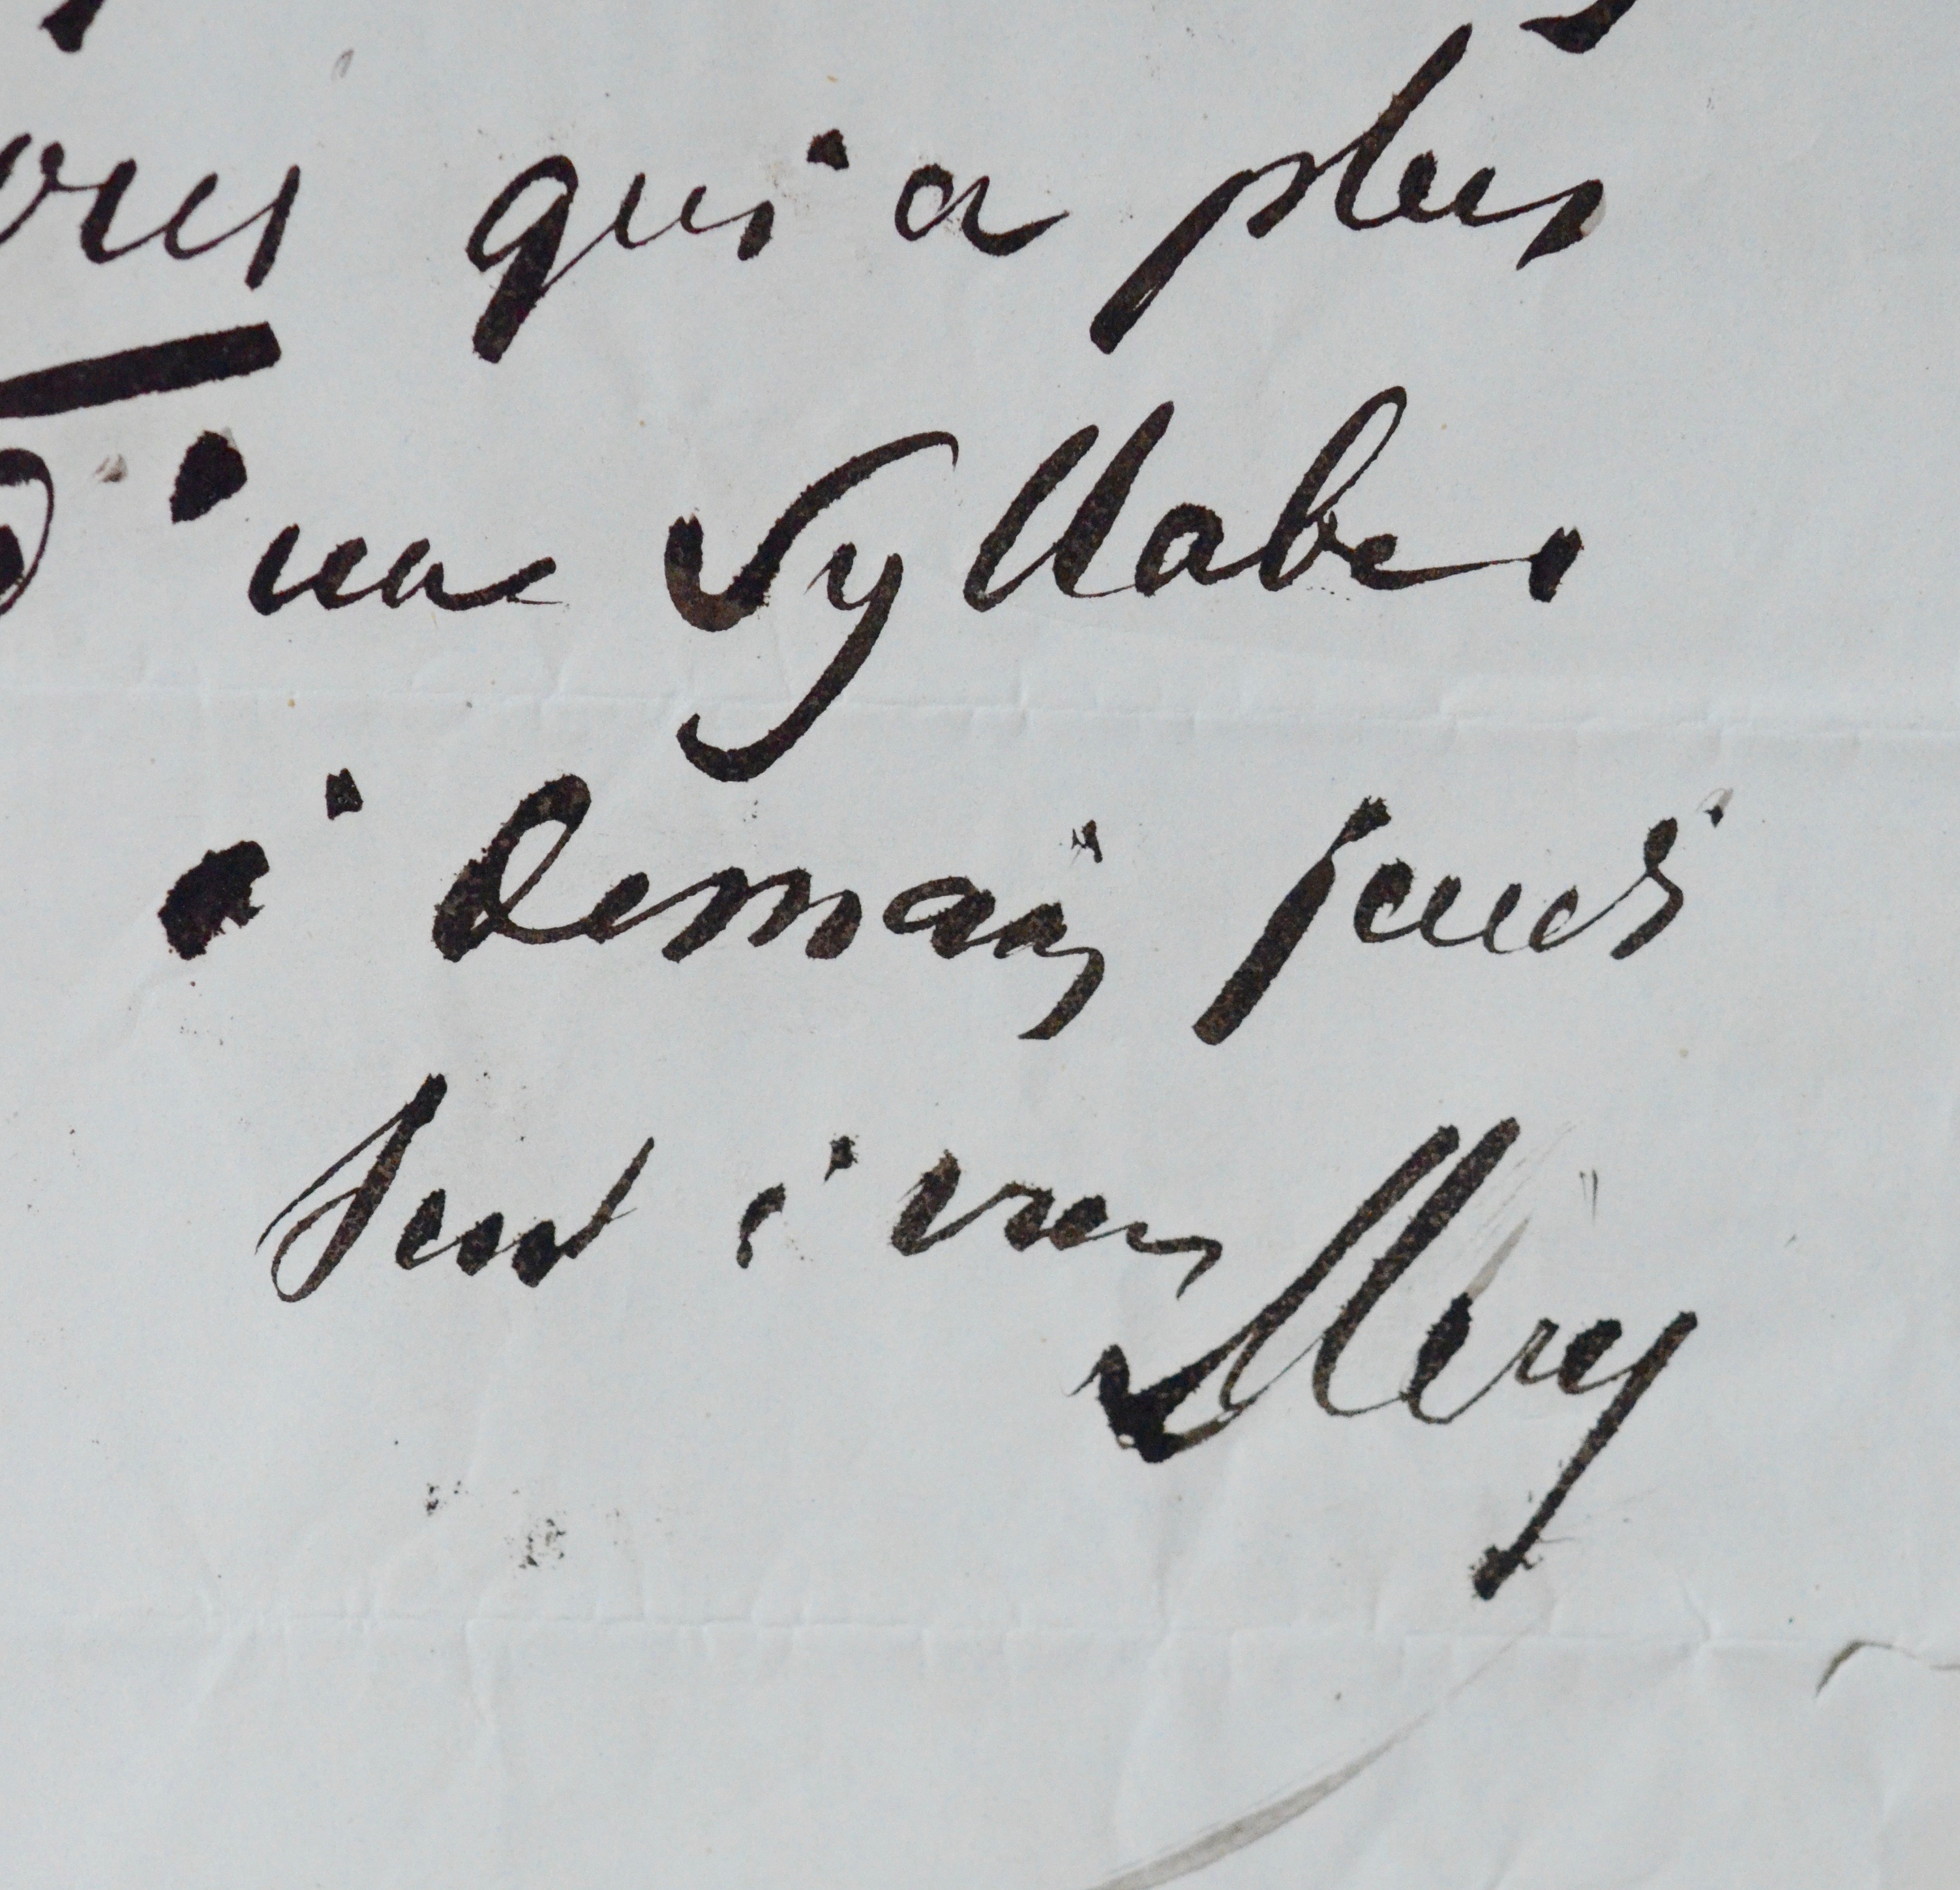 vous qui a plus
d'une syllabe.
à demain jeudi
tout à vous
Mery